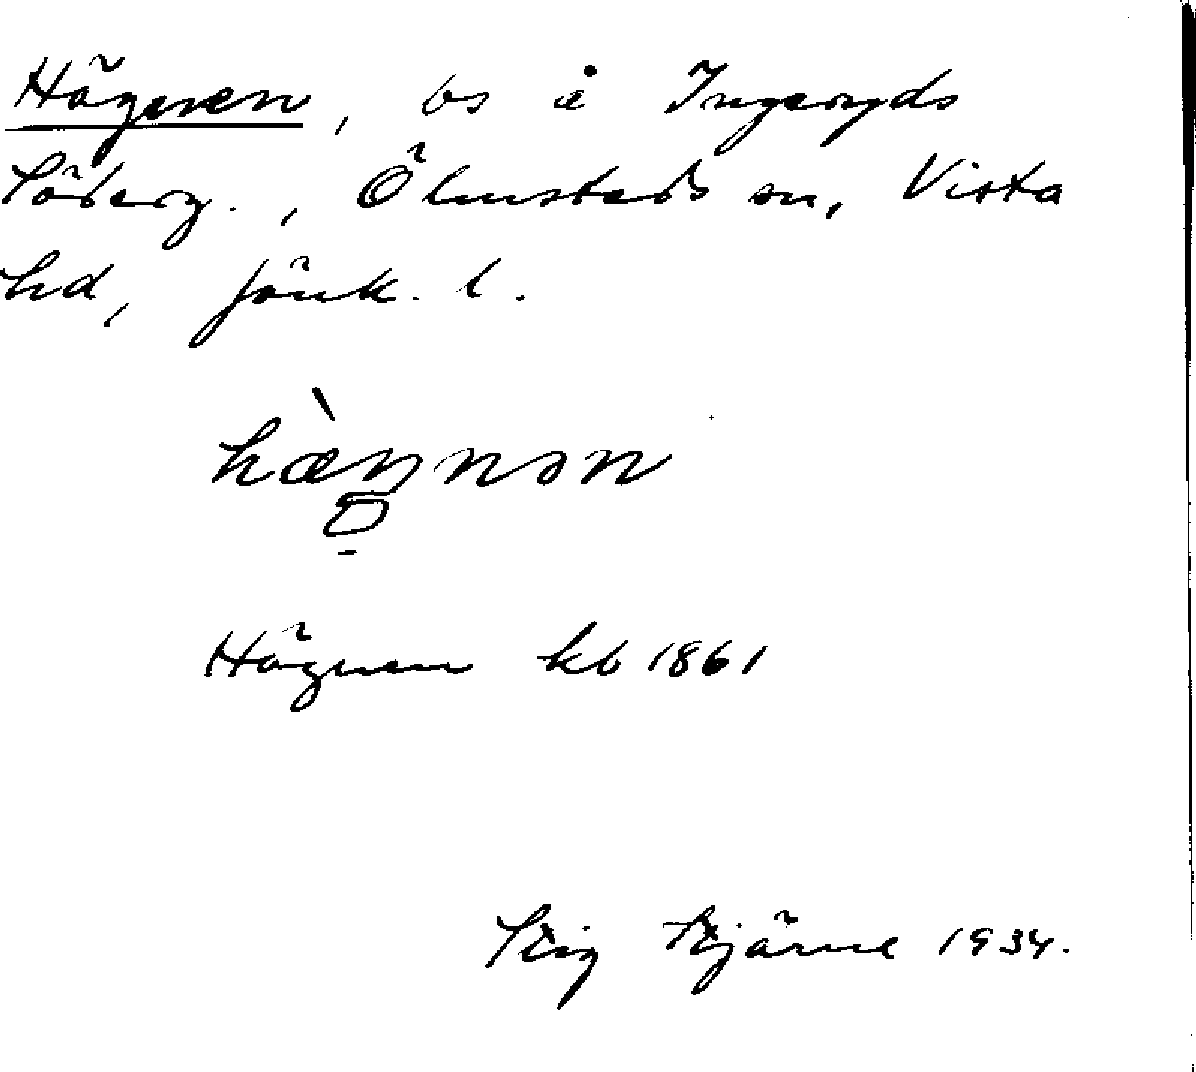 Hägnen, bs å Ingeryds
Söderg., Ölmstads sn, Vista
hd, Jönk. l.
hæ̀ŋnən
Hägnen kb 1861
Stig Stjärne 1934.